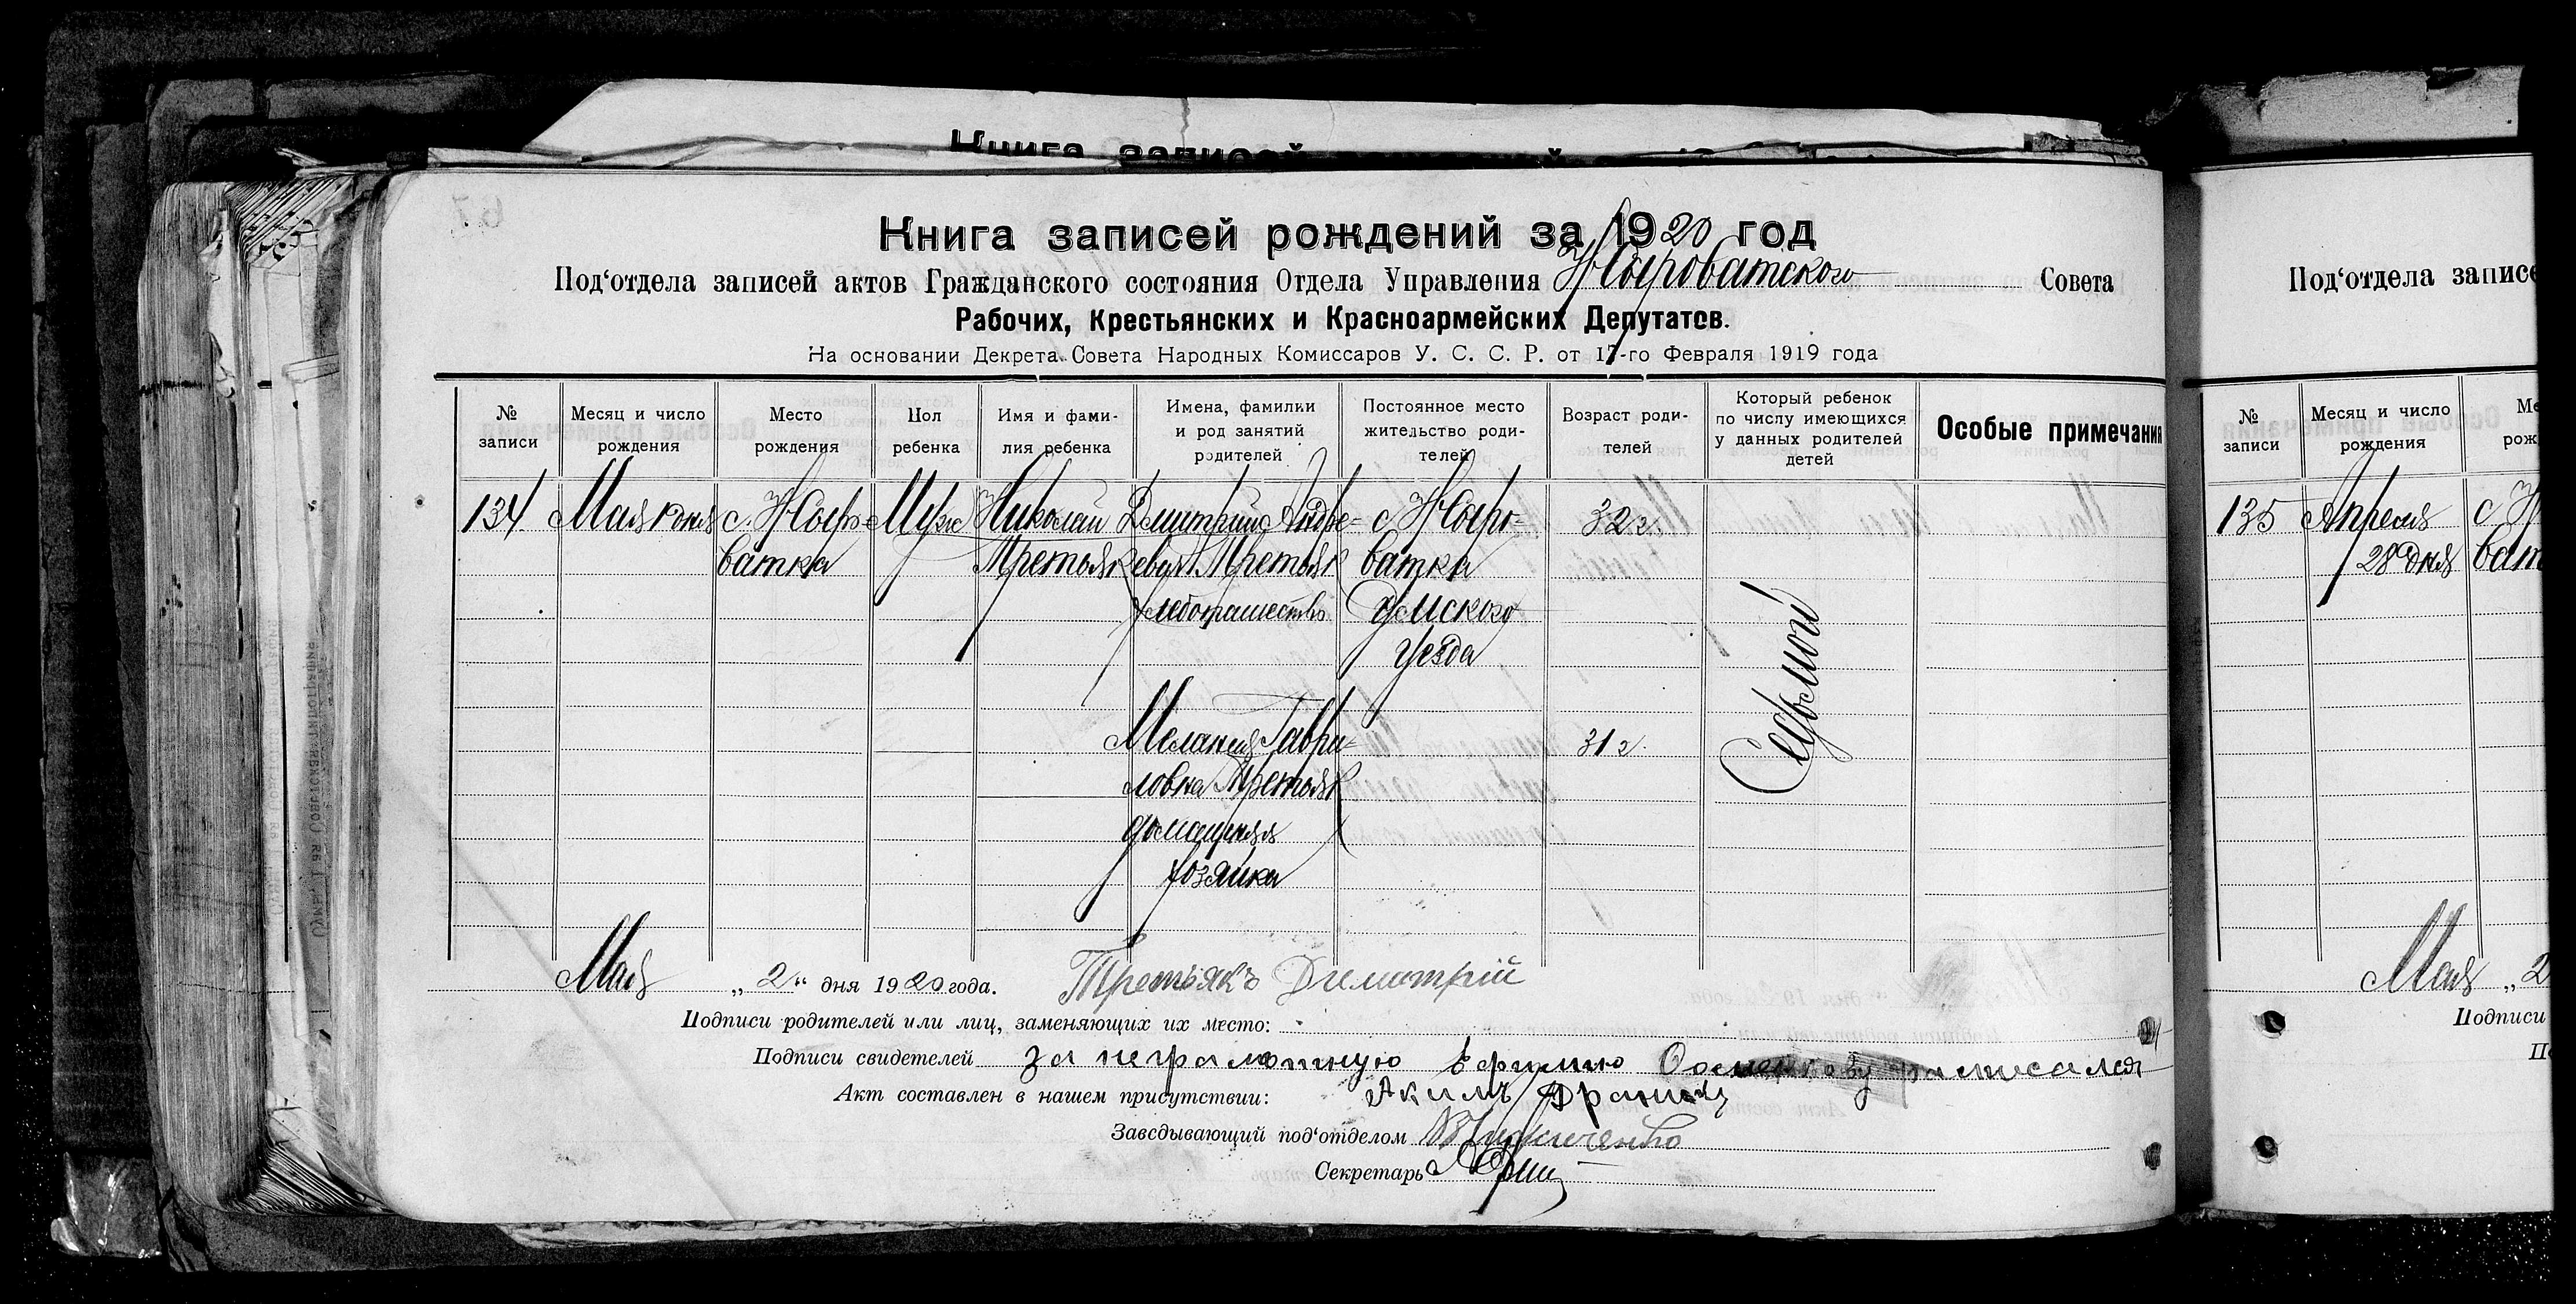 Книга записей
Книга записей рождений за 1920 год
Под‘отдела записей актов Гражданского состояния Отдела Управления Н Сыроватского Совета
Рабочих, Крестьянских и Красноармейских Депутатов.
На основании Декрета Совета Народных Комиссаров У. С. С. Р. от 17-го Февраля 1919 года
№ записи
Месяц и число рождения
Место рождения
Пол ребенка
Имя и фами-
лия ребенка
Имена, фамилии
и род занятий
родителей
Постоянное место
жительство роди-
телей
Возраст роди-
телей
Который ребенок
по числу имеющихся
у данных родителей
детей
Особые примечания
134
Мая 1 дня
с. Н Сыро-
ватка
Муж
Николай
Третьяк
Дмитрий Андре-
евич Третьяк
хлебопашество
с Н Сыро-
ватка
Сумского
уезда
32 г.
Мелания Гаври-
ловна Третьяк
домашняя
хозяйка
31 г.
Седьмой
Мая „2“ дня 1920 года. Третьякъ Димитрій
Подписи родителей или лиц, заменяющих их место:
Подписи свидетелей за неграмотную Ефимию росписался
Акт составлен в нашем присутствии: Акимъ
Заведывающий под‘отделом
Секретарь
Под‘отдела записе
№ записи
Месяц и число рождения
135
Апреля
28 дня
с Н
ват
Мая „2
Подписи